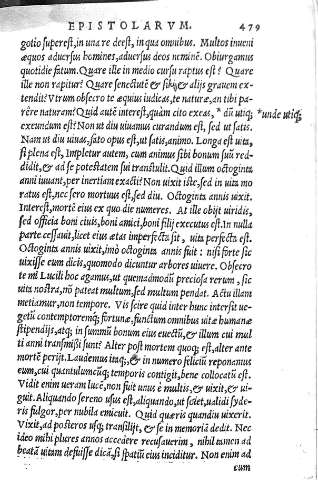 EPISTOLARVM. 479
gotio superest, in una re deest, in qua omnibus. Multos inueni
æquos aduersus homines, aduersus deos neminē. Obiurgamus
quotidie fatum. Quare ille in medio cursu raptus est? Quare
ille non rapitur? Quare senectutē & sibi, & alijs grauem ex-
tendit? Vtrum obsecro te æquius iudicas, te naturæ, an tibi pa-
rére naturam? Quid autē interest, quàm cito exeas, * dū utiq; *unde utiq;
exeundum est? Non ut diu uiuamus curandum est, sed ut satis.
Nam ut diu uiuas, fato opus est, ut satis, animo. Longa est uita,
si plena est, Impletur autem, cum animus sibi bonum suū red-
didit, & ad se potestatem sui transtulit. Quid illum octoginta
anni iuuant, per inertiam exacti? Non uixit iste, sed in uita mo
ratus est, nec sero mortuus est, sed diu. Octoginta annis uixit.
Interest, mortē eius ex quo die numeres. At ille obijt uiridis,
sed officia boni ciuis, boni amici, boni filij executus est. In nulla
parte cessauit, licet eius ætas imperfecta sit, uita perfecta est.
Octoginta annis uixit, imò octoginta annis fuit: nisi forte sic
uixisse eum dicis, quomodo dicuntur arbores uiuere. Obsecro
te mi Lucili hoc agamus, ut quemadmodū preciosa rerum, sic
uita nostra, nō pateat multum, sed multum pendat. Actu illam
metiamur, non tempore. Vis scire quid inter hunc intersit ue-
getū contemptoremq́; fortunæ, functum omnibus uitæ humanæ
stipendijs, atq; in summū bonum eius euectū, & illum cui mul
ti anni transmissi sunt? Alter post mortem quoq; est, alter ante
mortē perijt. Laudemus itaq;, & in numero felicū reponamus
eum, cui quantulumcūq; temporis contigit, bene collocatū est.
Vidit enim ueram lucē, non fuit unus è multis, & uixit, & ui-
guit. Aliquando sereno usus est, aliquando, ut sciet, ualidi syde-
ris fulgor, per nubila emicuit. Quid quæris quandiu uixerit.
Vixit, ad posteros usq; transilijt, & se in memoriā dedit. Nec
ideo mihi plures annos accedere recusauerim, nihil tamen ad
beatā uitam defuisse dicā, si spatiū eius inciditur. Non enim ad
eum